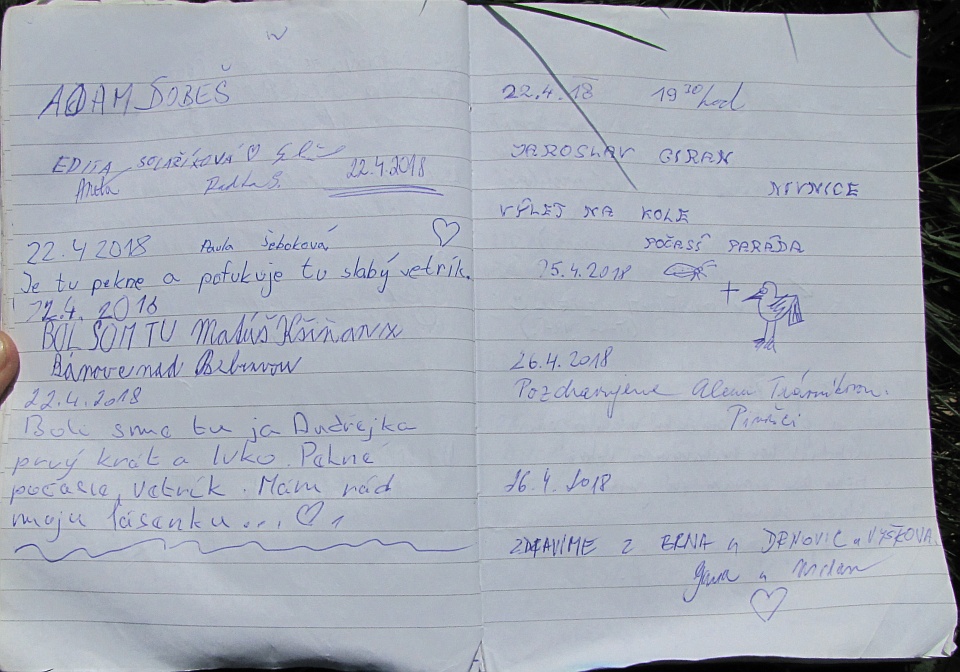 ADAM DOBEŠ
EDITA SOLAŘÍKOVÁ
Aneta Radka S. 22.4.2018
22.4 2018 Pavla Šeboková
Je tu pekne a pofukuje tu slabý vetrík.
22.4. 2018
BOL SOM TU Matúš
Bánovce nad Bebravou
22.4.2018
Boli sme tu ja Ondrejka
prvý krát a Luko. Pekné
počasie, vetrík. Mám rád
moju lásenku...
22.4.18 19 30 hod
JAROSLAV GIRAN
NIVNICE
VÝLET NA KOLE
POČASÍ PARÁDA
25.4.2018
+
26.4.2018
Pozdravujeme Alenu
26.4.2018
ZDRAVÍME Z BRNA a DRNOVIC a VYŠKOVA
Jana a Milan